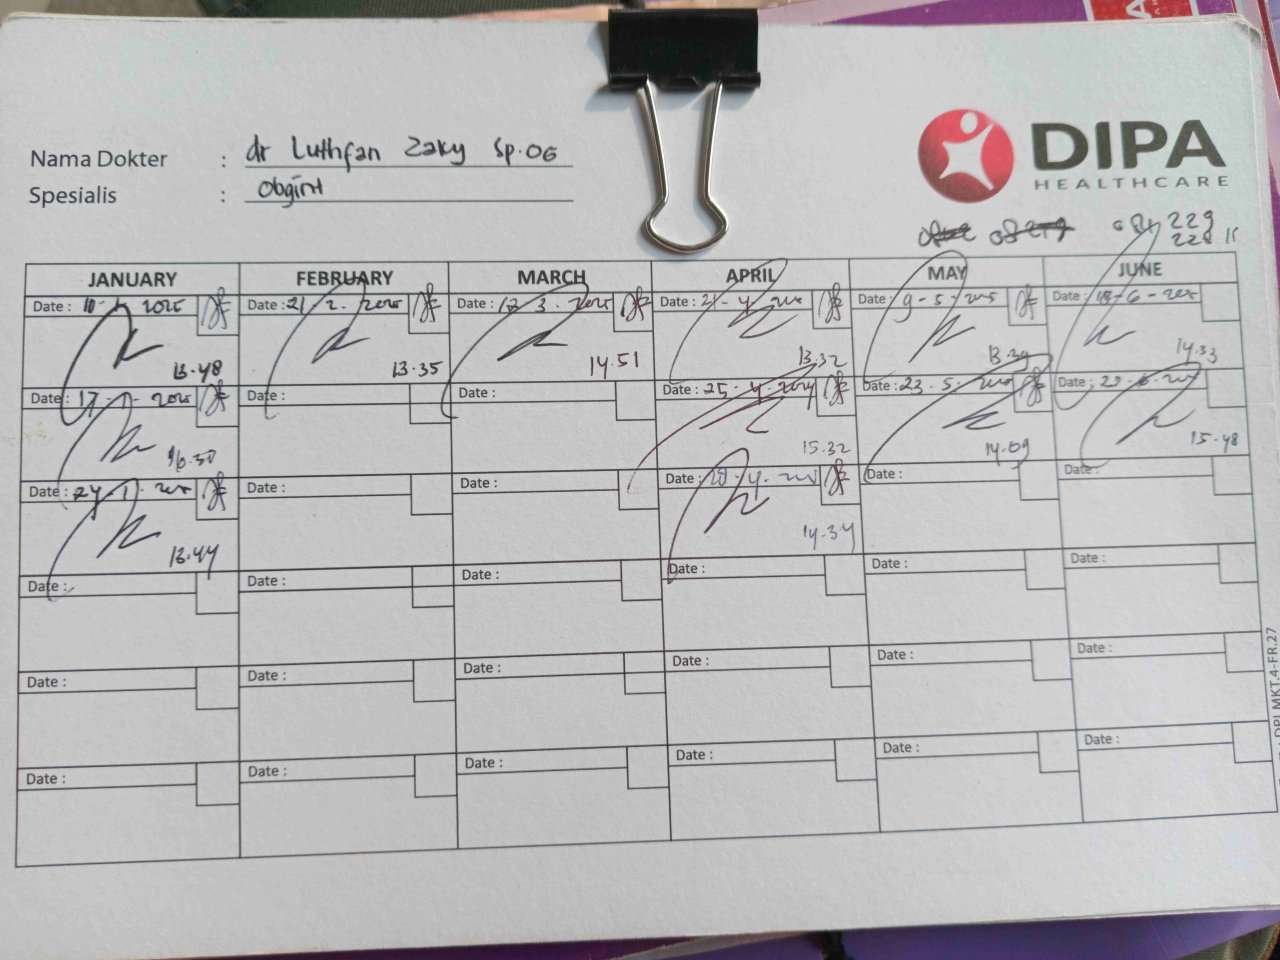 Nama Dokter : dr Luthfan Zaky Sp.OG
Spesialis : Obgin
DIPA
HEALTHCARE
229
228
JANUARY FEBRUARY MARCH APRIL MAY JUNE
Date : 10-1-2025 Date : 21-2-2025 Date : 12-3-2025 Date : 21-4-2025 Date : 9-5-2025 Date :
13.48 13.35 14.51 13.32 13.39 14.33
Date : 17-1-2025 Date : Date : Date : 25-4-2024 Date : 23-5-2025 Date :
16.30 15.32 14.09 15.48
Date : 24-1-2025 Date : Date : Date : 28-4-2025 Date : Date :
13.44 14.34
Date : Date : Date : Date : Date : Date :
Date : Date : Date : Date : Date : Date :
Date : Date : Date : Date : Date : Date :
DPI.MKT.4-FR.27